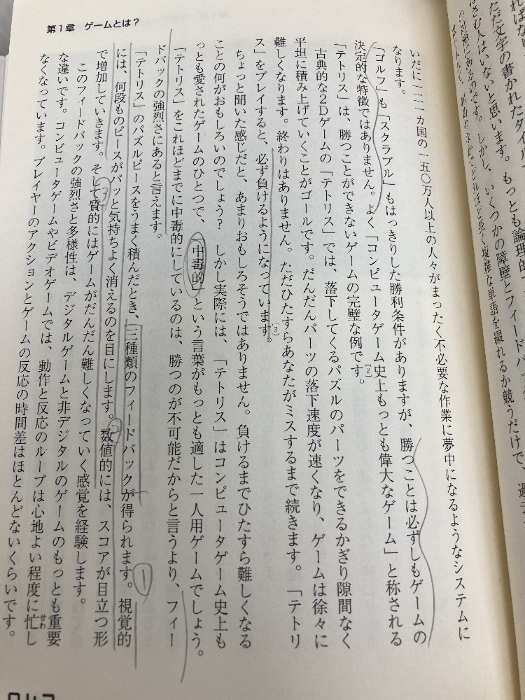 第1章 ゲームとは?
いだに一一一カ国の一五〇万人以上の人々がまったく不必要な作業に夢中になるようなシステムに
なります。
「ゴルフ」も「スクラブル」もはっきりした勝利条件がありますが、勝つことは必ずしもゲームの
決定的な特徴ではありません。よく「コンピュータゲーム史上もっとも偉大なゲーム」と称される
「テトリス」は、勝つことができないゲームの完璧な例です。
古典的な2Dゲームの「テトリス」では、落下してくるパズルのパーツをできるかぎり隙間なく
平坦に積み上げていくことがゴールです。だんだんパーツの落下速度が速くなり、ゲームは徐々に
難しくなります。終わりはありません。ただひたすらあなたがミスするまで続きます。「テトリ
ス」をプレイすると、必ず負けるようになっています。
ちょっと聞いた感じだと、あまりおもしろそうではありません。負けるまでひたすら難しくなる
ことの何がおもしろいのでしょう? しかし実際には、「テトリス」はコンピュータゲーム史上も
っとも愛されたゲームのひとつで、「中毒的」という言葉がもっとも適した一人用ゲームでしょう。
「テトリス」をこれほどまでに中毒的にしているのは、勝つのが不可能だからと言うより、フィー
ドバックの強烈さにあると言えます。
「テトリス」のパズルピースをうまく積んだとき、三種類のフィードバックが得られます。視覚的
には、何段ものピースがパッと気持ちよく消えるのを目にします。数値的には、スコアが目立つ形
で増加していきます。そして質的にはゲームがだんだん難しくなっていく感覚を経験します。
このフィードバックの強烈さと多様性は、デジタルゲームと非デジタルのゲームのもっとも重要
な違いです。コンピュータゲームやビデオゲームでは、動作と反応のループは心地よい程度に忙し
なくなっています。プレイヤーのアクションとゲームの反応の時間差はほとんどないくらいです。